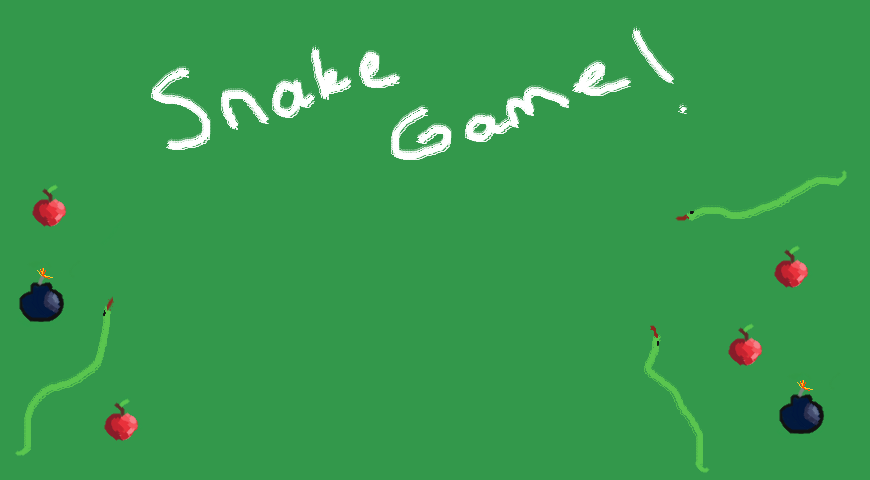 Snake
Game!